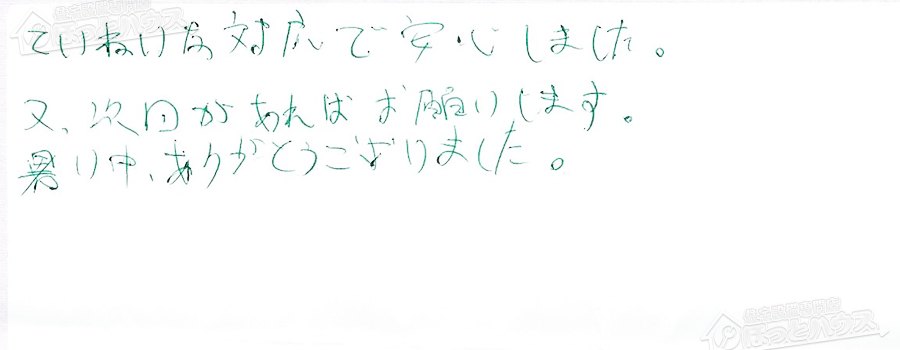 ていねいな対応で安心しました。
又、次回があればお願いします。
暑い中、ありがとうございました。
ほっとハウス
ほっとハウス